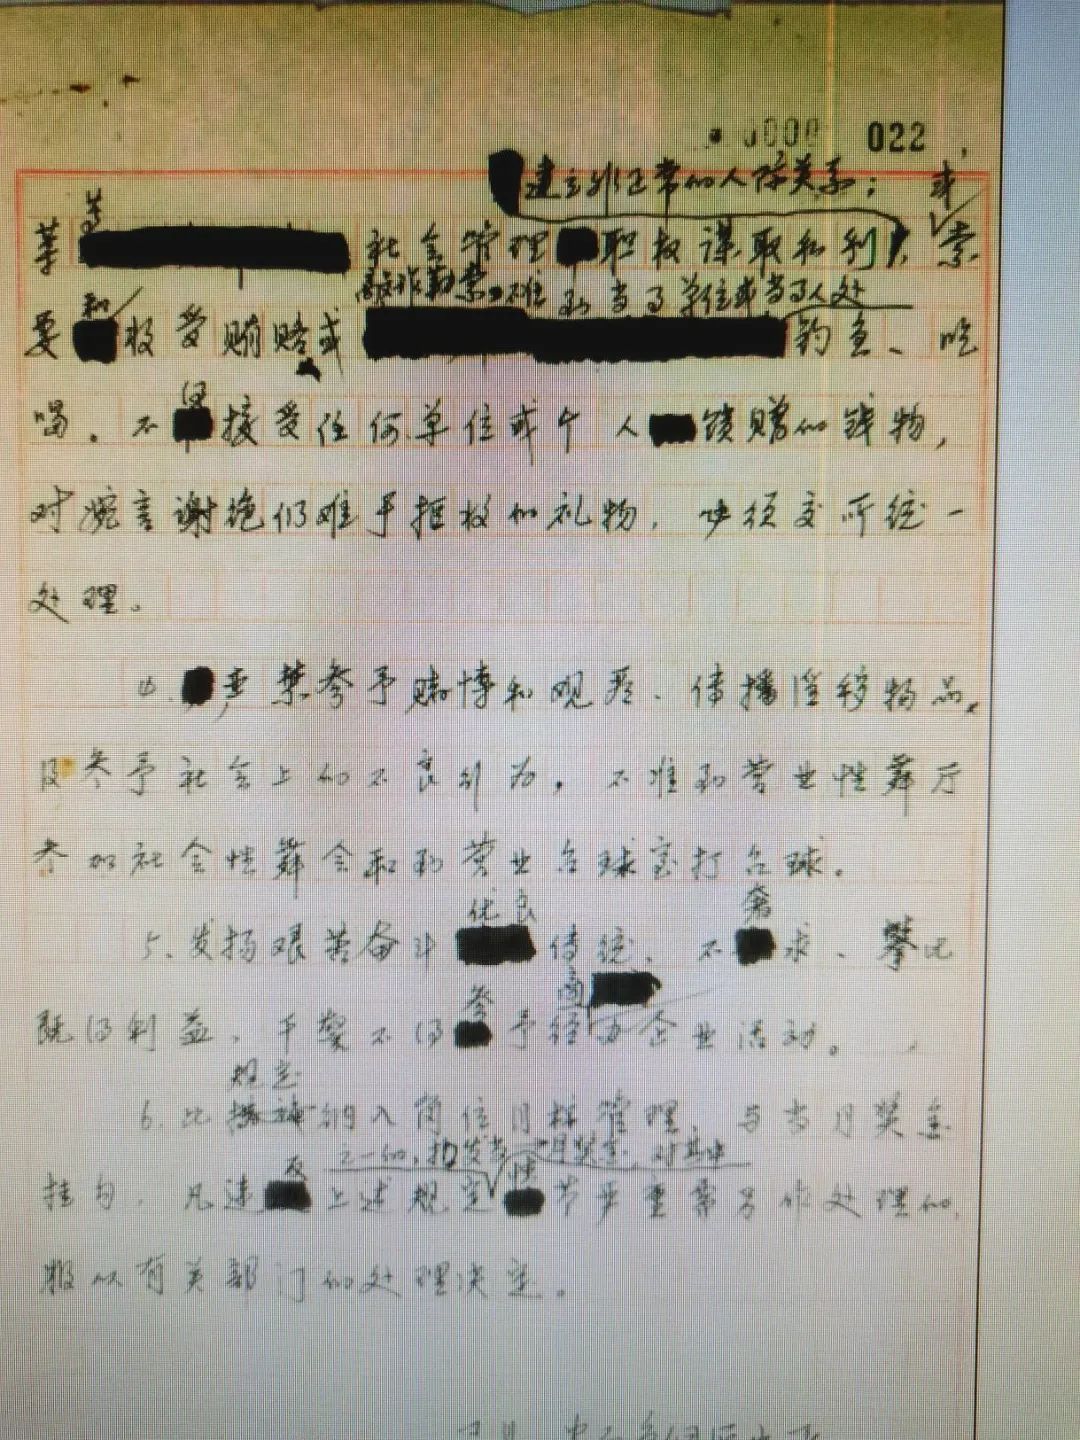 0000 022
建立非正常的人际关系；或
等
社会管理 职权谋取私利，索
和 不准到当事单位或当事人处
要 收受贿赂或 钓鱼、吃
得
喝。不 接受任何单位或个人 馈赠的钱物，
对婉言谢绝仍难于拒收的礼物，必须交所统一
处理。
严禁参予赌博和观看、传播淫秽物品，
及参予社会上的不良行为，不准到营业性舞厅
参加社会性舞会和到营业台球室打台球。
优良 奢
5、发扬艰苦奋斗 传统，不 求、攀比
参 商
既得利益，干警不得 予经办企业活动。
规定
6、此 纳入岗位目标管理，与当月奖金
反 之一的，扣发当月奖金，对其中 情
挂勾，凡违 上述规定 节严重需另作处理的，
报以有关部门的处理决定。